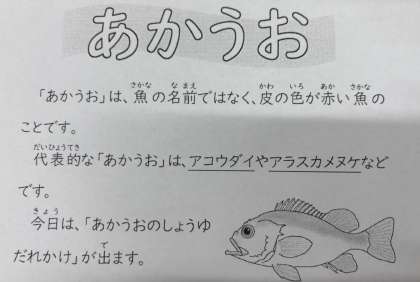 あかうお
「あかうお」は、魚の名前ではなく、皮の色が赤い魚の
ことです。
代表的な「あかうお」は、アコウダイやアラスカメヌケなど
です。
今日は、「あかうおのしょうゆ
だれかけ」が出ます。